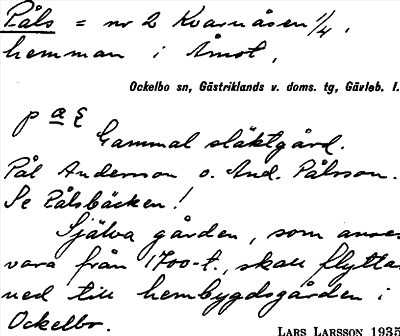 Påls = nr 2 Kvarnåsen 1/4,
hemman i Åmot,
Ockelbo sn, Gästriklands v. doms. tg, Gävleb. l.
p a ξ
Gammal släktgård.
Pål Anderson o. And. Pålsson.
Se Pålsbäcken!
Själva gården, som anses
vara från 1700-t., skall flyttas
ned till hembygdsgården i
Ockelbo.
LARS LARSSON 1935